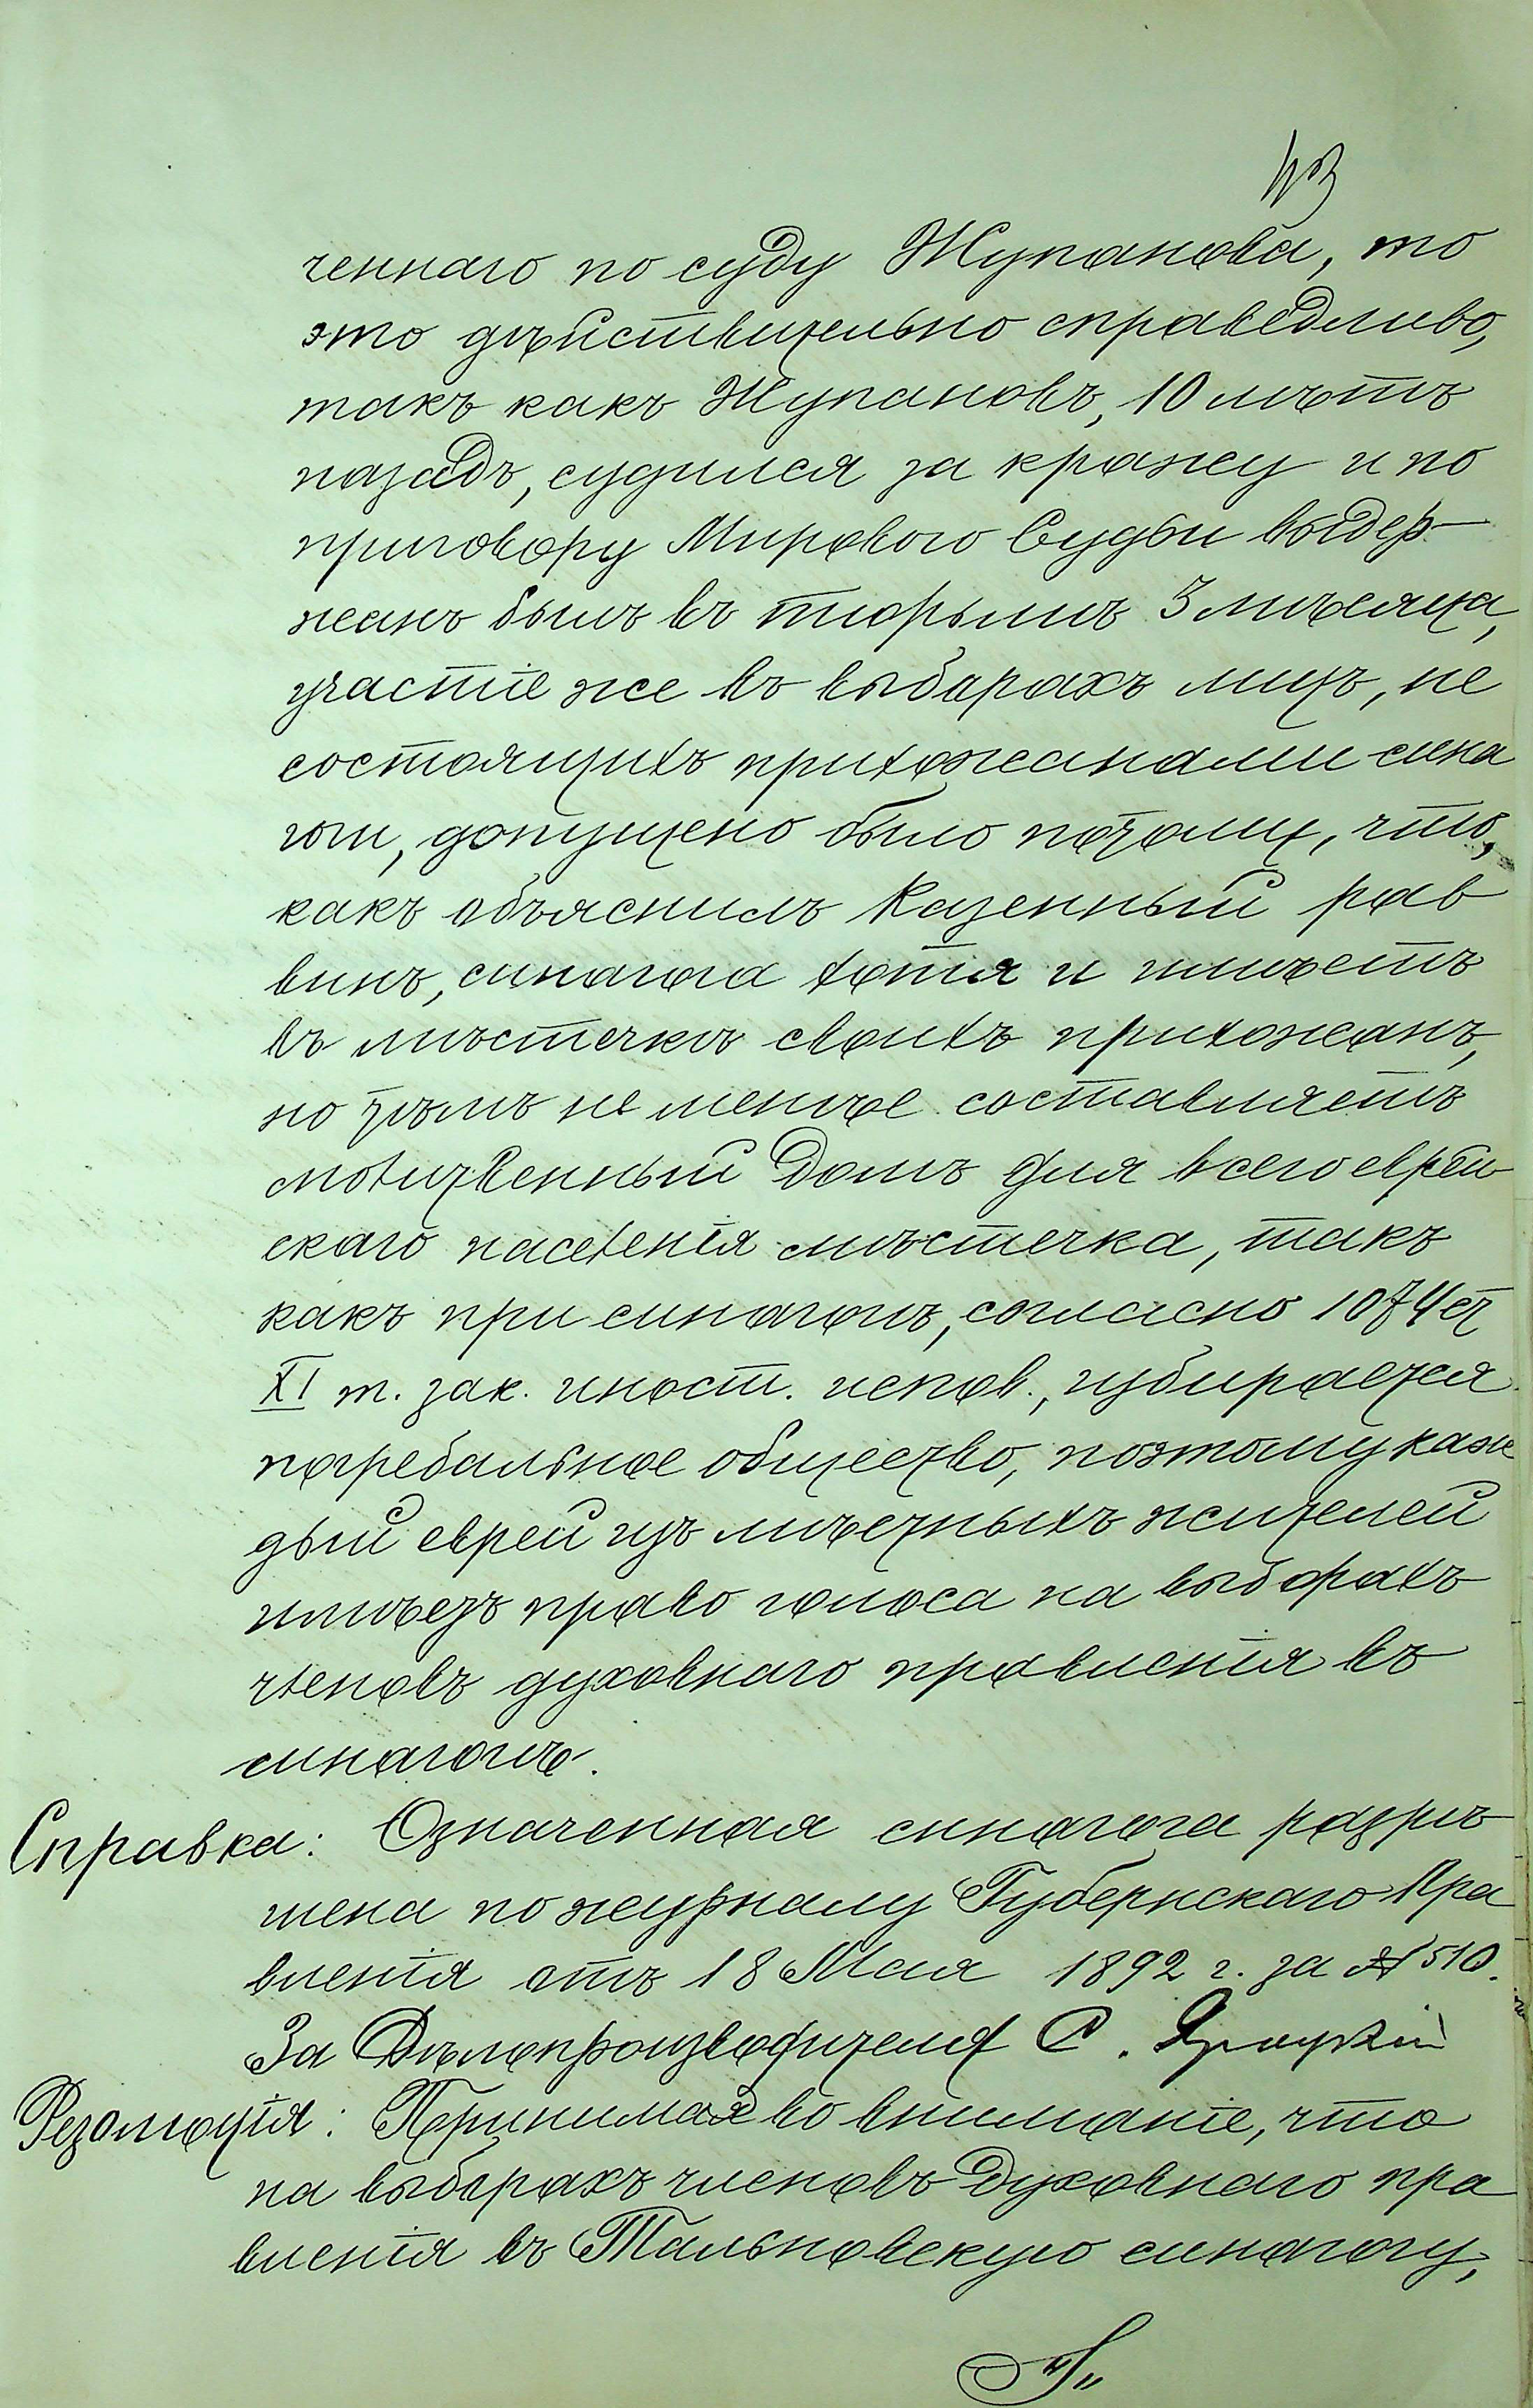 ченнаго по суду Жупанова, то
это дѣйствительно справедливо,
такъ какъ Жупановъ, 10 лѣтъ
назадъ, судился за кражу и по
приговору Мирового Судьи выдер-
жанъ былъ въ тюрьмѣ 3 мѣсяца,
участіе же въ выборахъ лицъ, не
состоящихъ прихожанами сина
гоги, допущено было потому, что,
какъ объяснилъ Казенный рав
винъ, синагога хотя и имѣетъ
въ мѣстечкѣ своихъ прихожанъ,
но тѣмъ не менѣе составляетъ
молитвенный домъ для всего еврей
скаго населенія мѣстечка, такъ
какъ при синагогѣ, согласно 1074 ст
XI т. зак. иност. испов., избирается
погребальное общество, поэтому каж
дый еврей изъ мѣстныхъ жителей
имѣетъ право голоса на выборахъ
членовъ духовнаго правленія въ
синагогѣ.
Справка: Означенная синагога разрѣ
шена по журналу Губернскаго Пра
вленія отъ 18 Мая 1892 г. за № 510.
За Дѣлопроизводителя С.
Резолюція: Принимая во вниманіе, что
на выборахъ членовъ духовнаго пра
вленія въ Тальновскую синагогу,